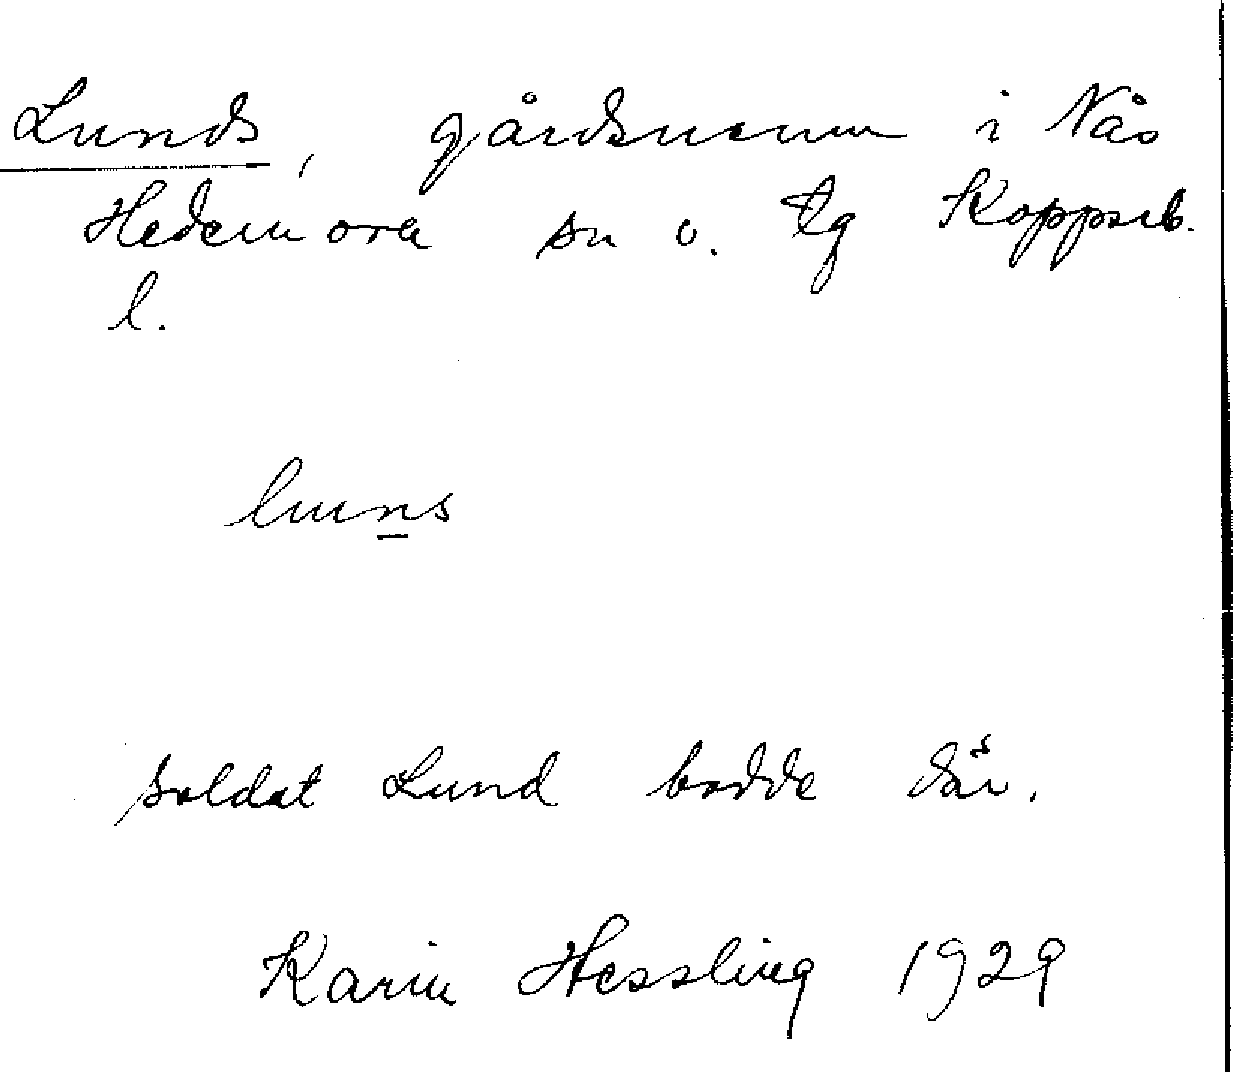 Lunds, gårdsnamn i Nås
Hedemora sn o. tg Kopparb.
l.
luns
soldat Lund bodde där.
Karin Hessling 1929